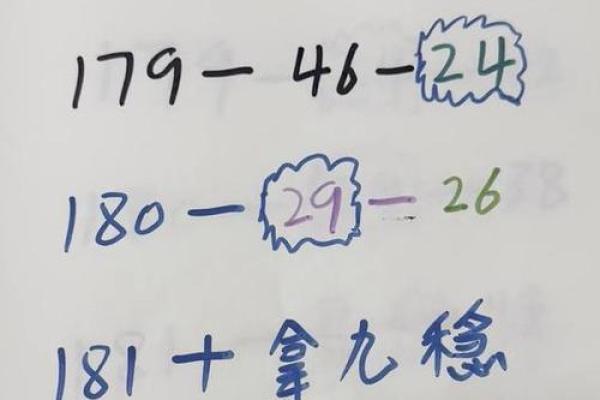 179－46－24
180－29－26
181＋拿九稳